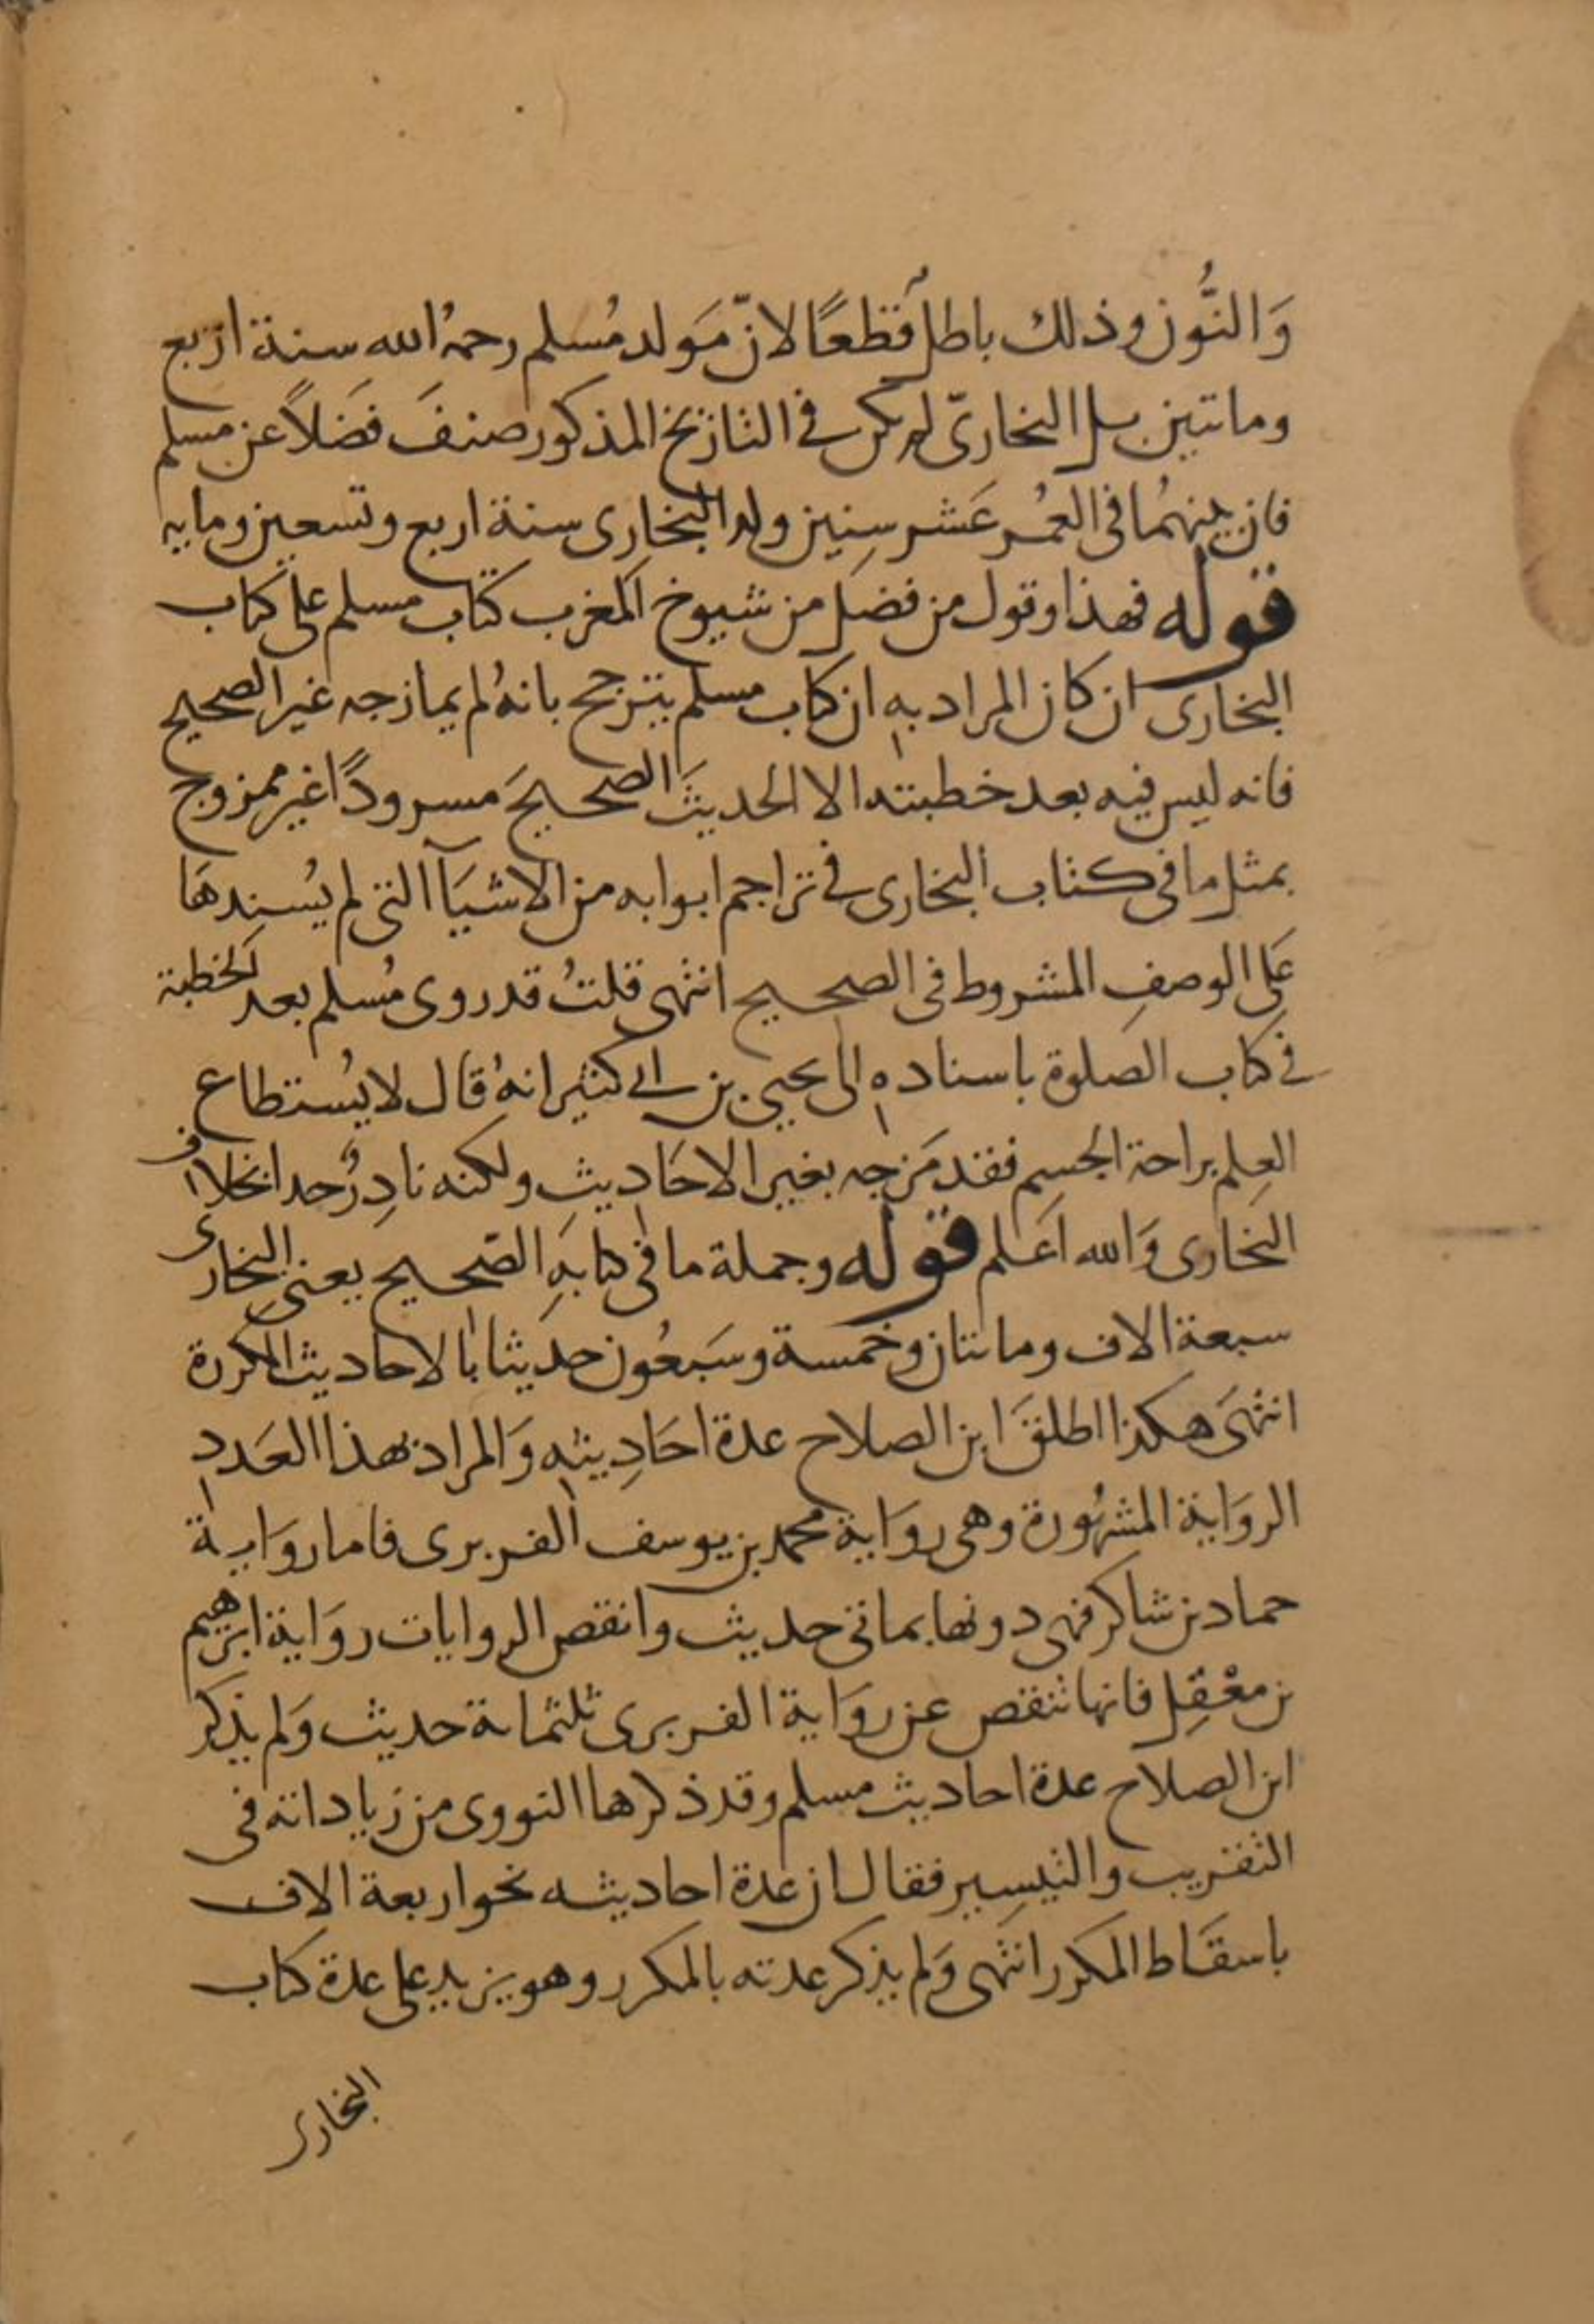 وَالنُّون وذلك باطل قطعًا لانّ مَولد مُسلم رحمهُ الله سنة اربع
وماتتين بل البخاريّ لم يكن في التاريخ المذكور صنفَ فضَلاً عن مسلم
فان بينهُما فى العُمُر عَشر سِنِين ولد البخارى سنة اربع وتسعين ومايه
قوله فهذا وقول من فضل من شيوخ المغرب كتاب مسلم على كتاب
البخارى ان كان المراد به ان كتاب مسلم يترجح بانهُ لم يمازجه غير الصحيح
فانه ليس فيه بعد خطبته الا الحديثَ الصحيحَ مسرودًا غير ممزوج
بمثل ما فى كتاب البخارى فى تراجم ابوابه من الاشيَآ التى لم يُسندهَا
عَلى الوصفِ المشروط فى الصحيح انتهى قلتُ قد روى مُسلم بعد الخطبة
فى كتاب الصلوة باسناده الى يحيى بن ابى كثير انهُ قال لا يُستطاع
العِلم براحة الجسم فقد مَزجه بغير الاحَادِيثِ ولكنه نادِرٌ جدا بخلاف
البخارى وَالله اَعلم قوله وجملة ما فى كتابهِ الصّحيح يعنى البخارى
سبعة الاف وماتتان وخمسة وسَبعُون حديثا بالاحاديث المكررة
انتهىَ هكذا اطلقَ ابن الصلاح عدة احَادِيثه وَالمراد بهذا العَدد
الروَاية المشهُورة وهى روَاية محمد بن يوسف الفربرى فاما روَاية
حماد بن شاكر فهى دونها بماتى حديث وانقص الروايات روَاية ابرهيم
بن معْقِل فانها تنقص عن روَاية الفربرى ثلثماىة حديث وَلم يذكر
ابن الصلاح عدة احاديث مسلم وقد ذكرها النووى من زياداته فى
التقريب والتيسِير فقال ان عدة احاديثه نحو اربعة الاف
باسقَاط المكرر انتهى وَلم يذكر عدته بالمكرر وهو يزيد على عدة كتاب
البخارى